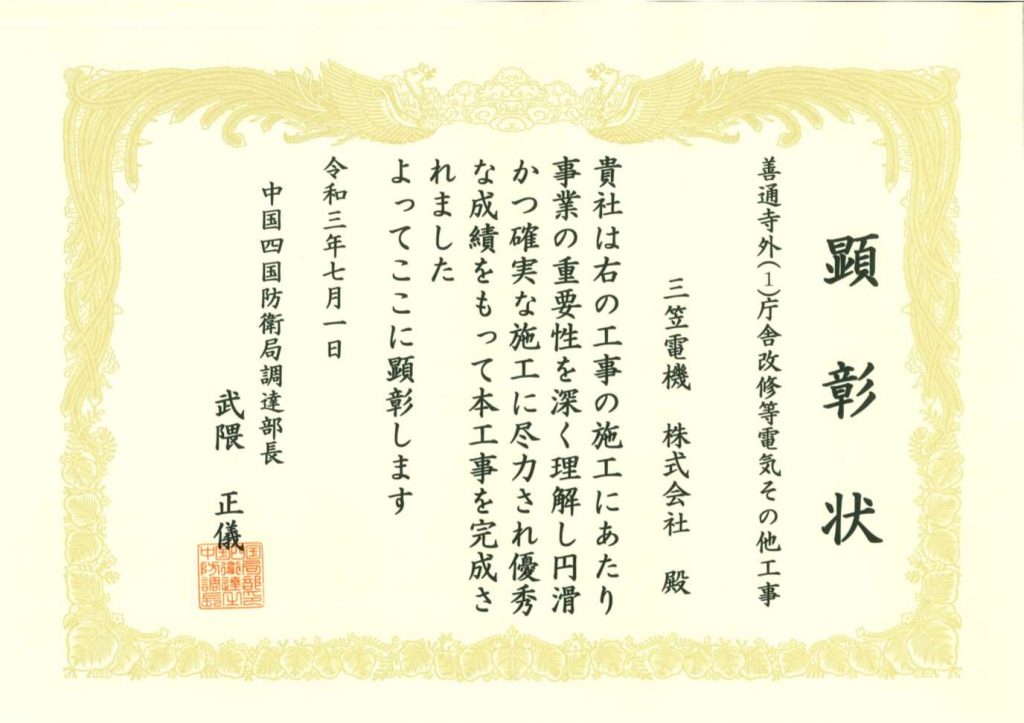 顕彰状
善通寺外(1)庁舎改修等電気その他工事
三笠電機　株式会社　殿
貴社は右の工事の施工にあたり
事業の重要性を深く理解し円滑
かつ確実な施工に尽力され優秀
な成績をもって本工事を完成さ
れました
よってここに顕彰します
令和三年七月一日
中国四国防衛局調達部長
武隈　正儀